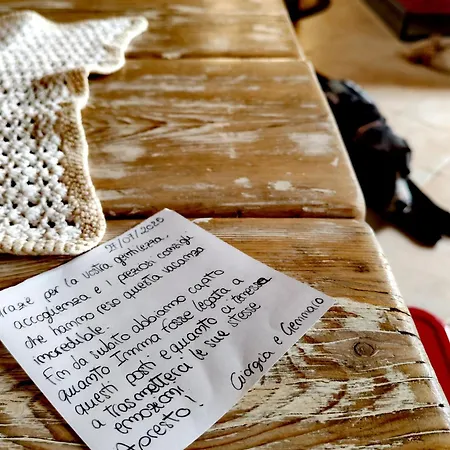 31/07/2025
Grazie per la vostra gentilezza,
accoglienza e i preziosi consigli
che hanno reso questa vacanza
incredibile.
Fin da subito abbiamo capito
quanto Imma fosse legata a
questi posti e quanto ci tenesse
a trasmetterci le sue stesse
emozioni.
A presto!
Giorgia e Gennaro